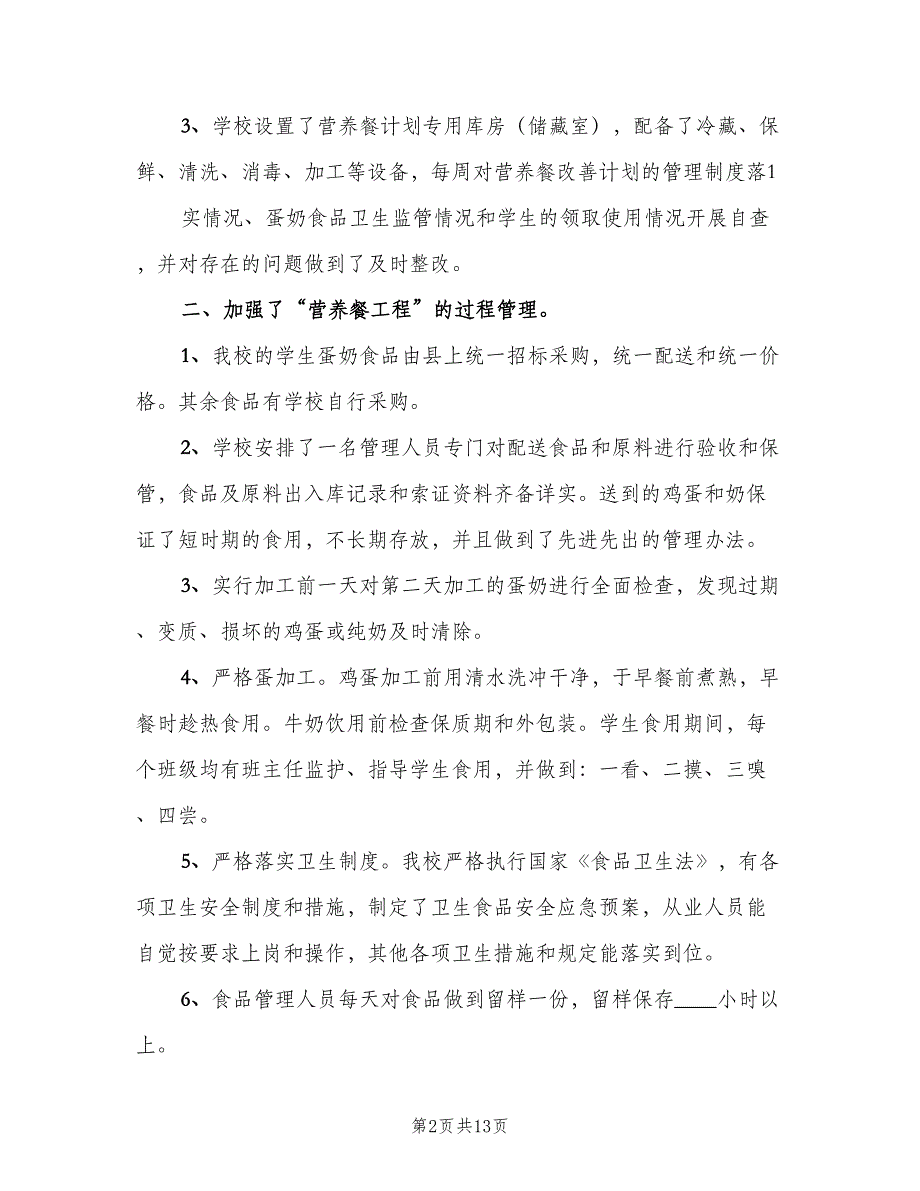 3、学校设置了营养餐计划专用库房（储藏室），配备了冷藏、保
鲜、清洗、消毒、加工等设备，每周对营养餐改善计划的管理制度落1
实情况、蛋奶食品卫生监管情况和学生的领取使用情况开展自查
，并对存在的问题做到了及时整改。
二、加强了“营养餐工程”的过程管理。
1、我校的学生蛋奶食品由县上统一招标采购，统一配送和统一价
格。其余食品有学校自行采购。
2、学校安排了一名管理人员专门对配送食品和原料进行验收和保
管，食品及原料出入库记录和索证资料齐备详实。送到的鸡蛋和奶保
证了短时期的食用，不长期存放，并且做到了先进先出的管理办法。
3、实行加工前一天对第二天加工的蛋奶进行全面检查，发现过期
、变质、损坏的鸡蛋或纯奶及时清除。
4、严格蛋加工。鸡蛋加工前用清水洗冲干净，于早餐前煮熟，早
餐时趁热食用。牛奶饮用前检查保质期和外包装。学生食用期间，每
个班级均有班主任监护、指导学生食用，并做到：一看、二摸、三嗅
、四尝。
5、严格落实卫生制度。我校严格执行国家《食品卫生法》，有各
项卫生安全制度和措施，制定了卫生食品安全应急预案，从业人员能
自觉按要求上岗和操作，其他各项卫生措施和规定能落实到位。
6、食品管理人员每天对食品做到留样一份，留样保存____小时以
上。
第2页共13页